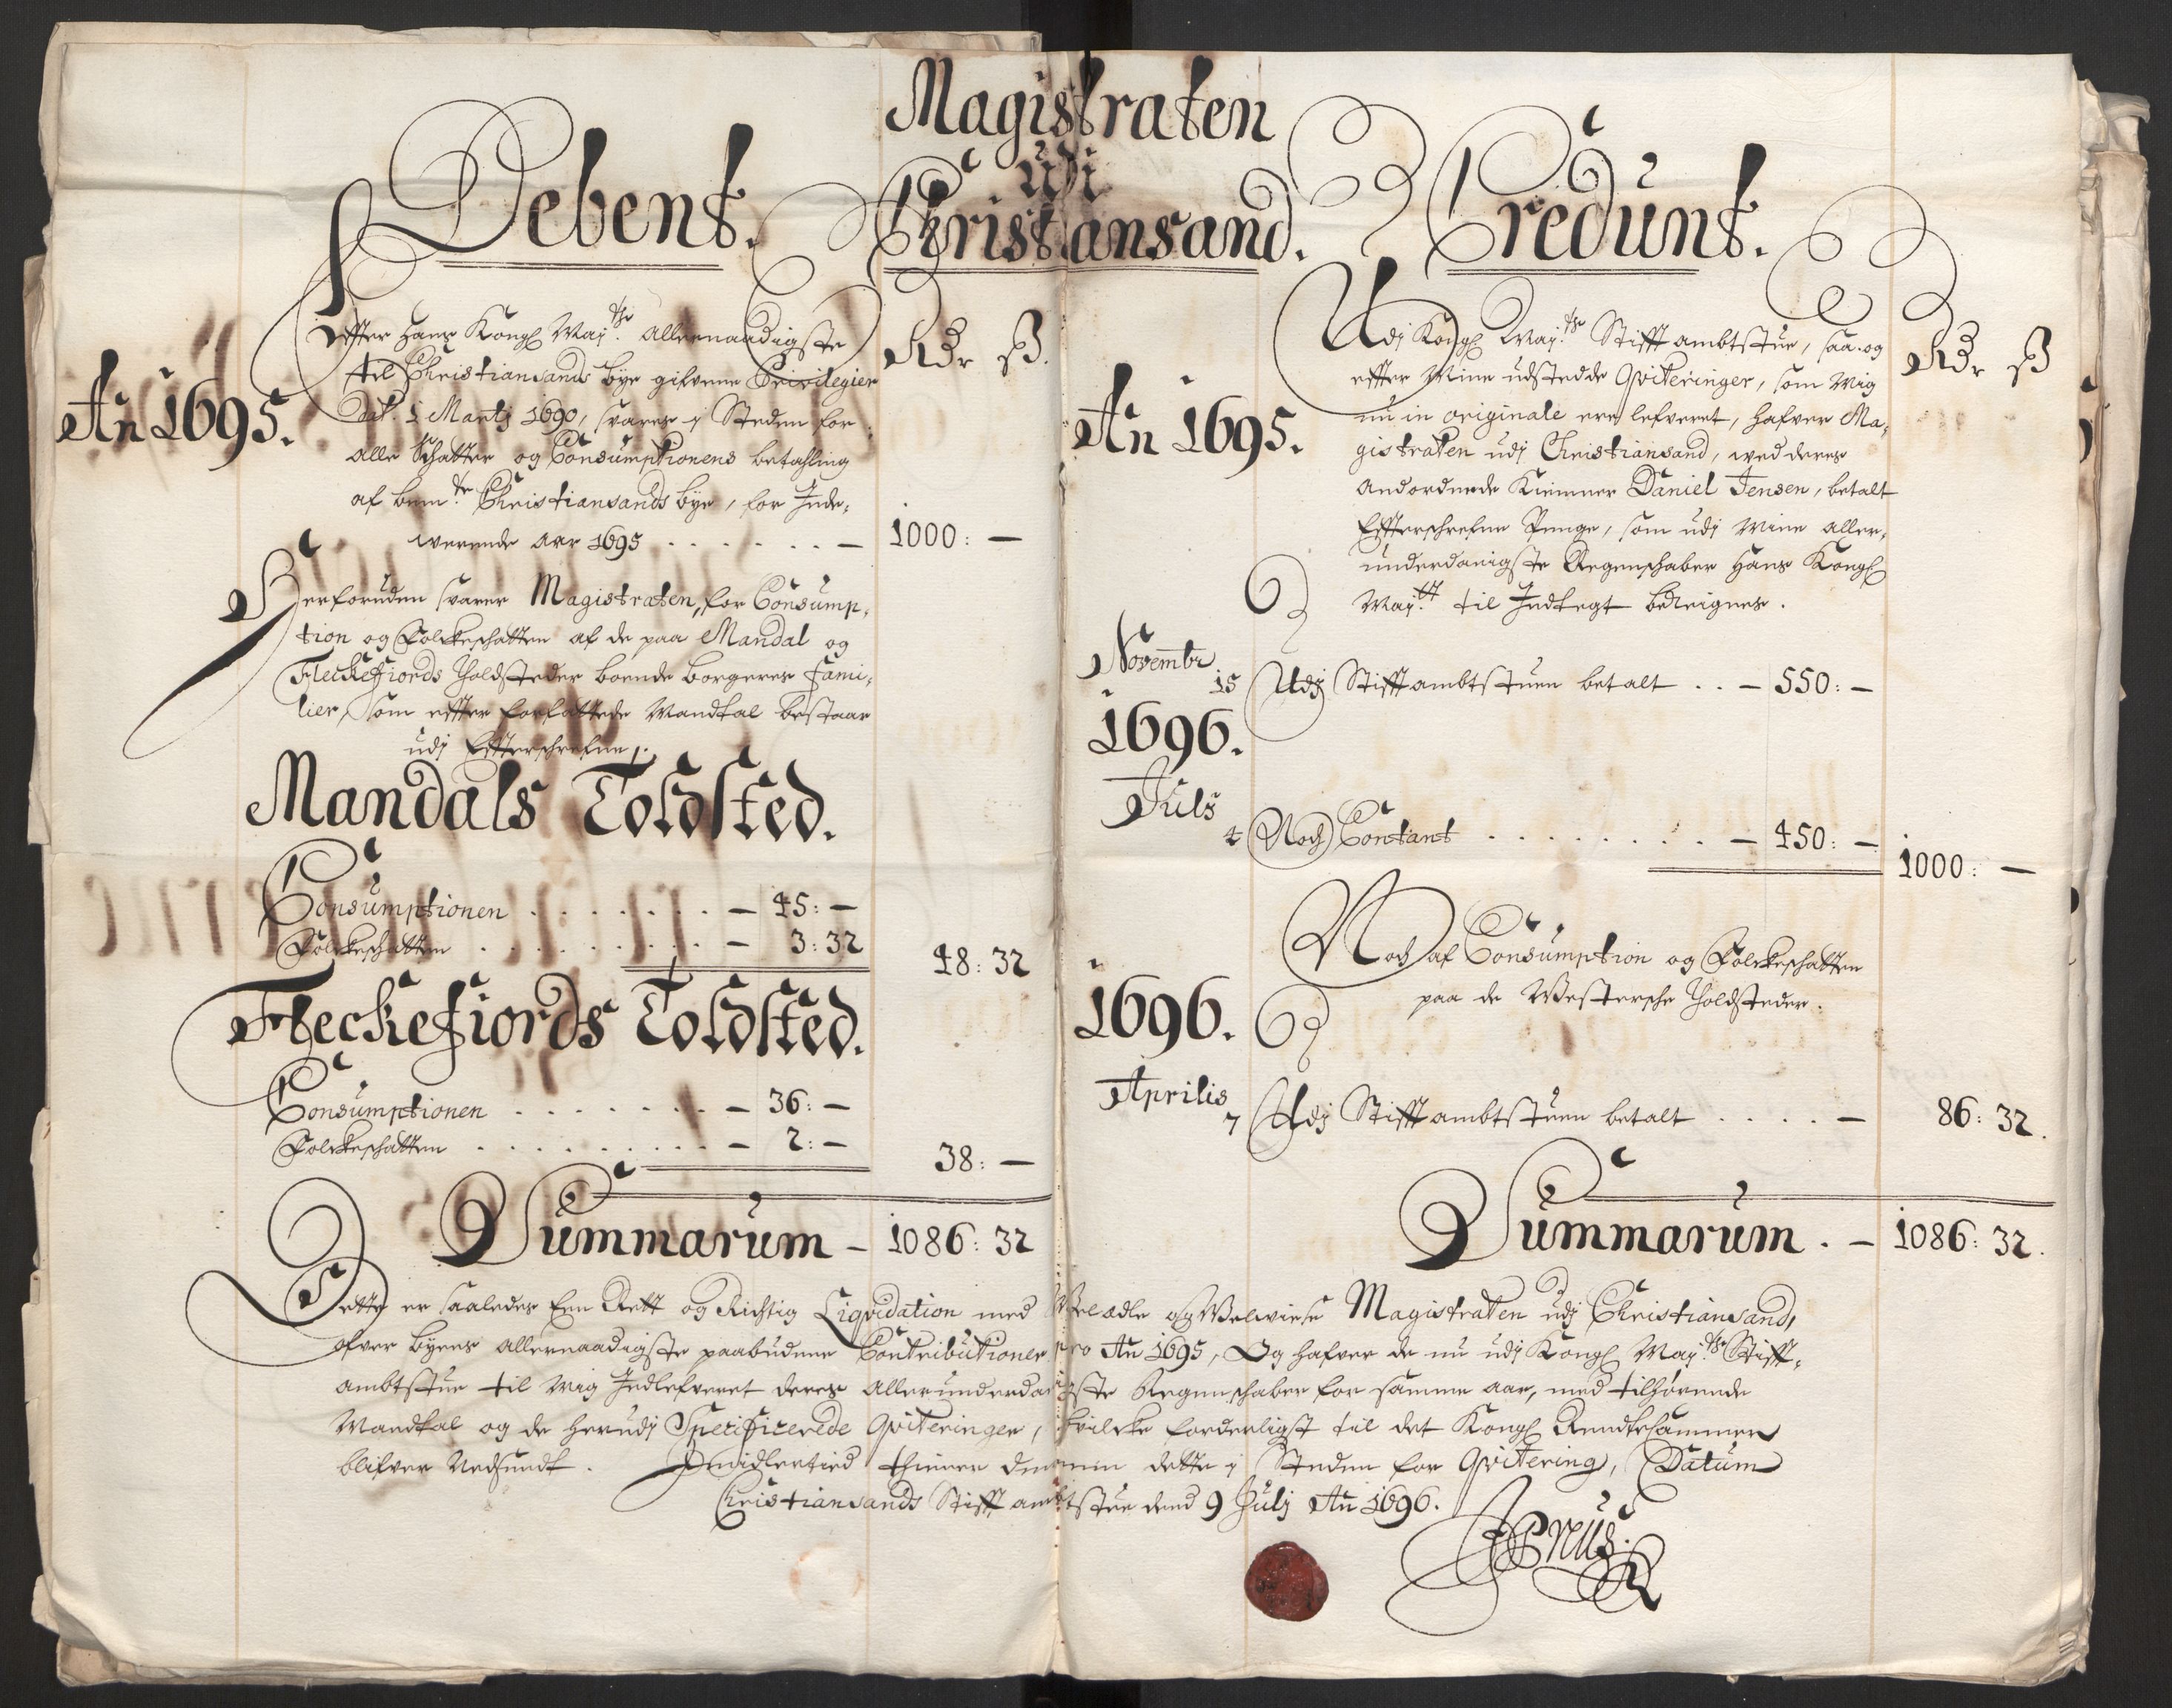 Magistraten
udi
Christiansand.
Debent.
Rdr ß.
An 1695.
Effter Hans Kongl May.ths Allernaadigste
til Christiansands bye gifvene Privilegier
Dat. 1 Martj 1690, svares j Steden for
alle Schatter og Consumptionens betahling
af bem.te Christiansands bye, for Inde,
werende aar 1695 . . . . . . . — 1000: —
Herforuden svarer Magistraten, for Consump,
tion og Folckeschatten af de paa Mandal og
Fleckefiords Toldsteder boende borgeres Fami,
lier, som effter forfattede Mandtal bestaar
udj Effterschrefne,
Mandals Toldsted.
Consumptionen . . . . . . . — 45: —
Folckeschatten . . . . . . . . — 3: 32
48: 32
Fleckefiords Toldsted.
Consumptionen . . . . . . . — 36: —
Folckeschatten . . . . . . . . — 2: —
38: —
Summarum — 1086: 32
Credunt.
Rdr ß
An 1695.
Udj Kongl May.ts Stifftambtstue, saa og
effter Mine udstedde Qviteringer, som Mig
nu in originale ere lefveret, hafver Ma,
gistraten udj Christiansand, wed deres
andordnede Kiemner Daniel Jensen, betalt
Effterschrefne Penge, som udj Mine aller,
underdanigste Regenschaber Hans Kongl
May.tt til Indtegt beregnes.
Novembr
15 Udj Stifftambtstuen betalt . . — 550: —
1696.
Julj
4 Noch Contant . . . . . . . . — 450: —
1000: —
Noch af Consumption og Folckeschatten
paa de Westersche Toldsteder.
1696.
Aprilis
7 Udj Stifftambtstuen betalt . . . . — 86: 32.
Summarum . — 1086: 32.
Dette er saaledes Een Rett og Richtig Liqvidation med Velædle og Velwiese Magistraten udj Christiansand,
ofver byens allernaadigste paabudene Contributioner pro An 1695, Og hafver de nu udj Kongl May.ts Stifft,
ambtstue til Mig Indlefveret deres Allerunderdanigste Regenschaber for samme aar, med tilhørende
Mandtal og de herudj Specificerede Qviteringer, hvilcke forderligst til det Kongl Rendtekammer
blifver Nedsendt. Imidlertied thiener dennem dette j Steden for Qvitering, Datum
Christiansands Stifftambtstue dend 9 Julj An 1696.